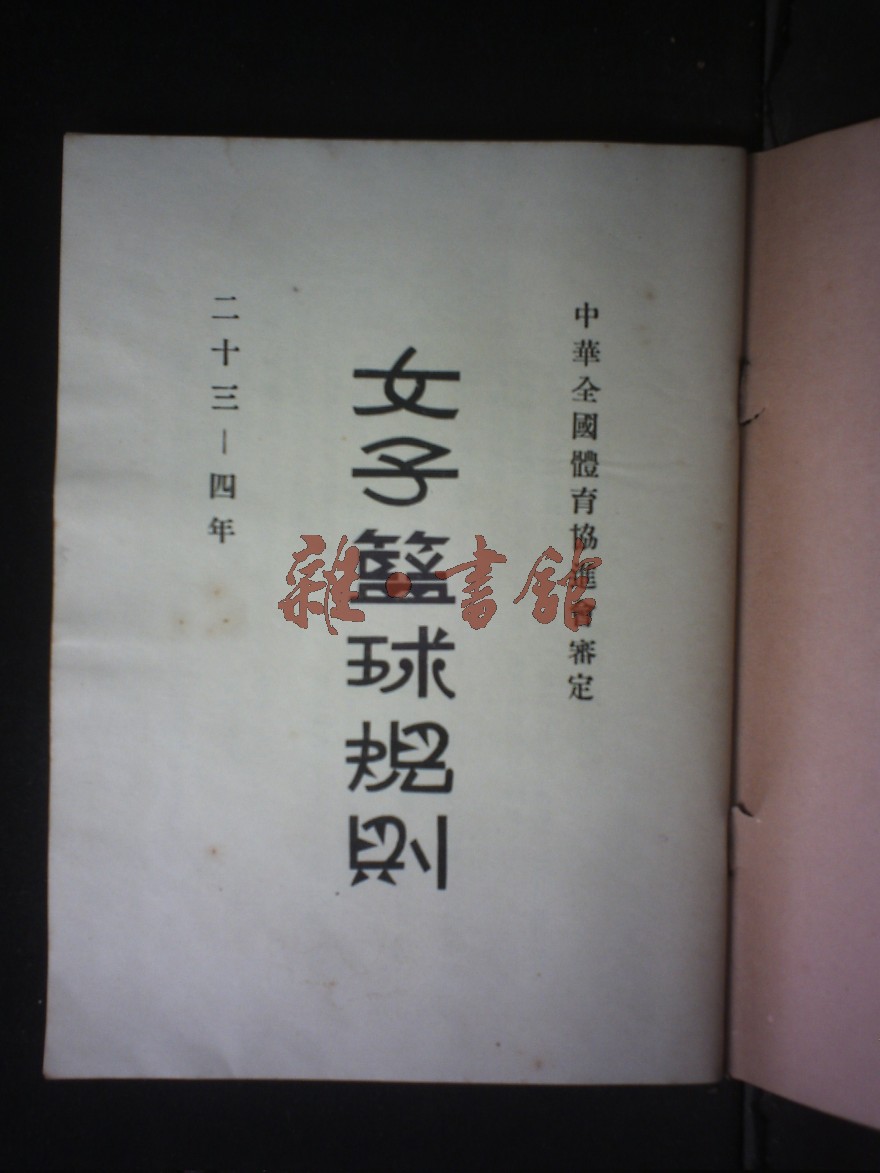 中華全國體育協進會審定
女子籃球規則
二十三－四年
雜·書館